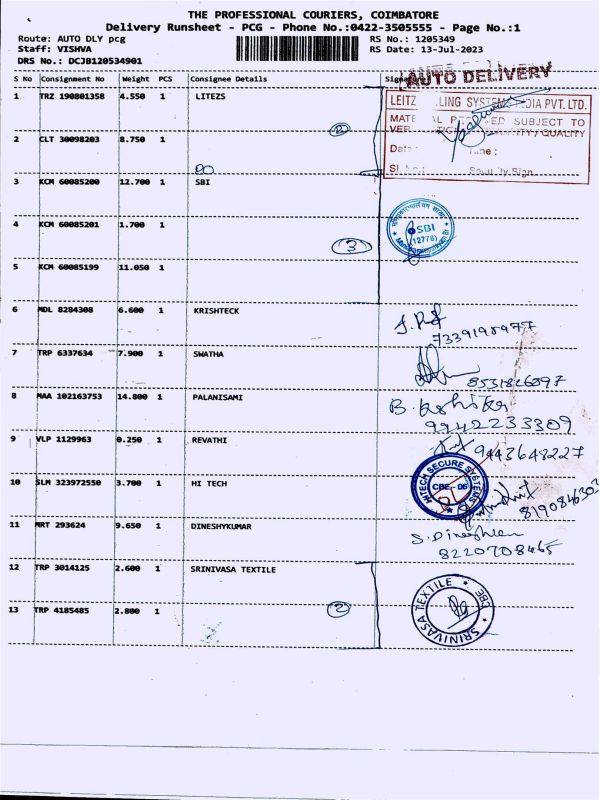 THE PROFESSIONAL COURIERS, COIMBATORE
Delivery Runsheet - PCG - Phone No.:0422-3505555 - Page No.:1
Route: AUTO DLY pcg RS No.: 1205349
Staff: VISHVA RS Date: 13-Jul-2023
DRS No.: DCJB120534901
S No Consignment No Weight PCS Consignee Details
AUTO DELIVERY
1 TRZ 190801358 4.550 1 LITEZS
LEITZ SYSTEMS PVT. LTD.
SUBJECT TO
QUALITY
2
2 CLT 30098203 8.750 1
DO
3 KCM 60085200 12.700 1 SBI
4 KCM 60085201 1.700 1
SBI
(12778)
3
5 KCM 60085199 11.050 1
6 MDL 8284308 6.600 1 KRISHTECK
7339198977
7 TRP 6337634 7.900 1 SWATHA
8531826397
8 MAA 102163753 14.800 1 PALANISAMI
9942233309
9 VLP 1129963 0.250 1 REVATHI
9443648227
10 SLM 323972550 3.700 1 HI TECH
HITECH SECURE SYSTEMS
CBE - 06
11 MRT 293624 9.650 1 DINESHYKUMAR
8220708465
12 TRP 3014125 2.600 1 SRINIVASA TEXTILE
13 TRP 4185485 2.800 1
2
SRINIVASA TEXTILE CBE